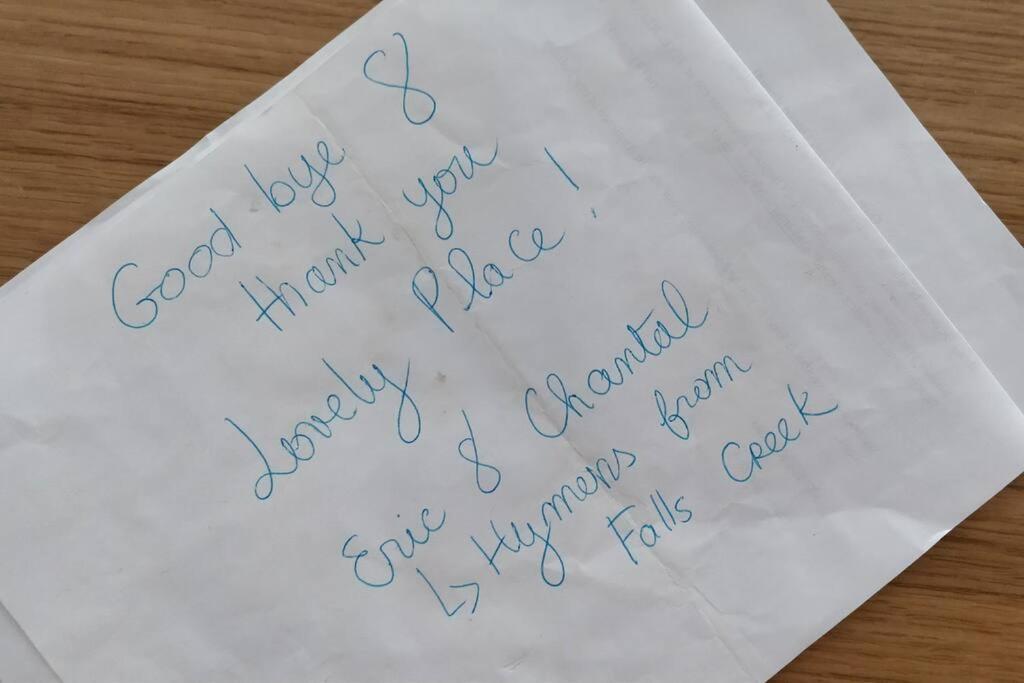 Good bye &
thank you
Lovely Place !
Eric & Chantal
↳ Hymens from
Falls Creek